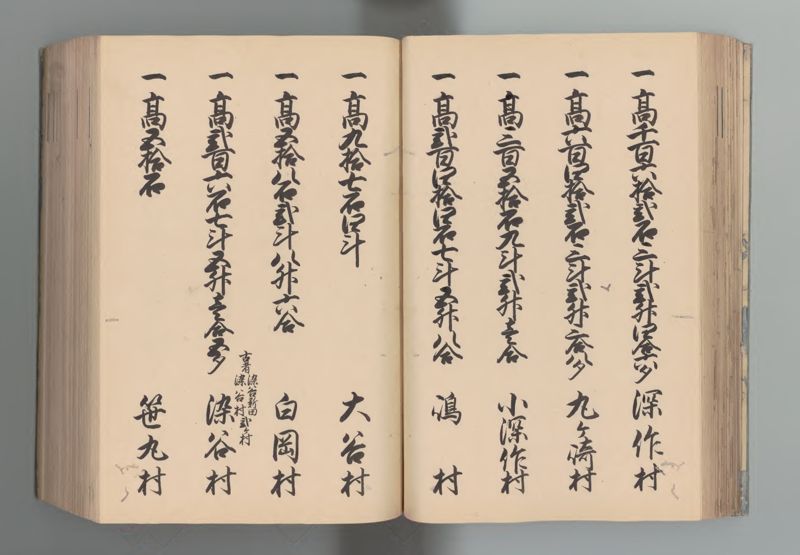 一高千百六拾弐石三斗弐升四合六夕 深作村
一高六百四拾弐石三斗弐升三合八夕 九ヶ崎村
一高三百五拾石九斗弐升壱合 小深作村
一高弐百四拾四石七斗五升八合 嶋村
一高九拾七石四斗 大谷村
一高五拾八石弐斗八升六合 白岡村
一高弐百六石七斗五升壱合五夕 染谷村
古者染谷村
染谷新田弐ヶ村
一高五拾石 笹丸村